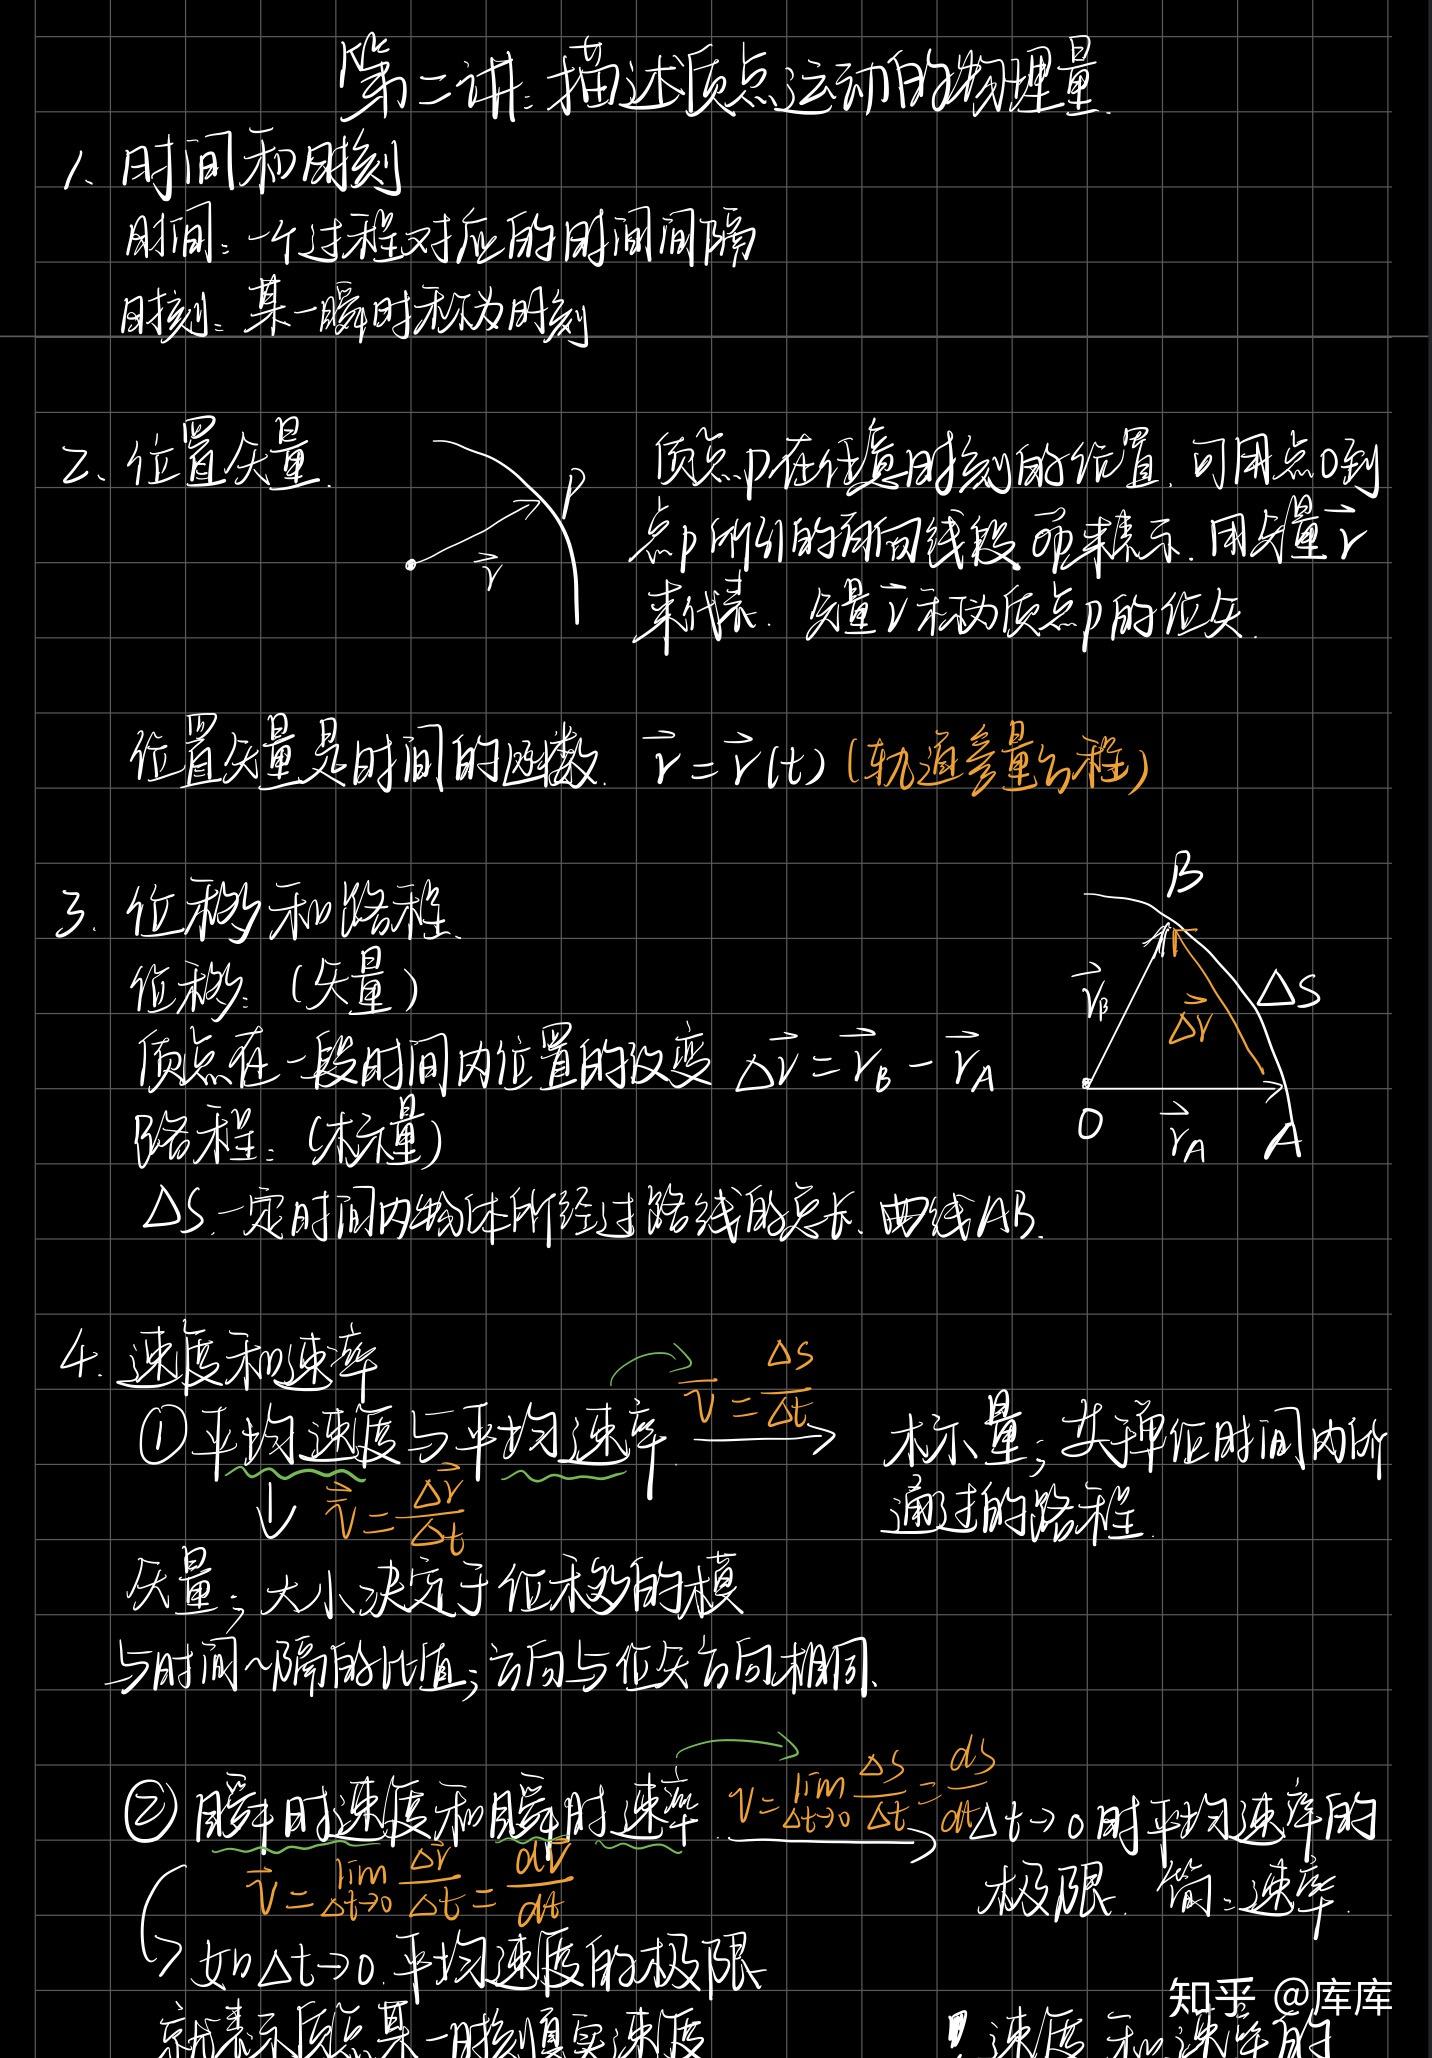 第二讲:描述质点运动的物理量.
1. 时间和时刻
时间:一个过程对应的时间间隔
时刻:某一瞬时称为时刻
2. 位置矢量.
P
r⃗
质点p在任意时刻的位置.可用点O到
点p所引的有向线段 来表示.用矢量r⃗
来代表. 矢量r⃗称为质点p的位矢.
位置矢量是时间的函数. r⃗=r⃗(t)(轨道参量方程)
3. 位移和路程.
位移:(矢量)
质点在一段时间内位置的改变 Δr⃗=r⃗B-r⃗A
路程:(标示量)
ΔS.一定时间内物体所经过路线的总长.曲线AB.
B
r⃗B
Δr⃗
ΔS
O
r⃗A
A
4. 速度和速率
①平均速度与平均速率.
v̅=ΔS/Δt
标示量;某单位时间内所
通过的路程.
v̅⃗=Δr⃗/Δt
矢量;大小决定于位移的模
与时间~隔的比值;方向与位矢方向相同.
②瞬时速度和瞬时速率.
v=lim Δt→0 ΔS/Δt=ds/dt
Δt→0时平均速率的
极限. 简:速率.
v⃗=lim Δt→0 Δr⃗/Δt=dr⃗/dt
如Δt→0.平均速度的极限
就表示质点某一时刻真实速度
! 速度和速率的
知乎 @库库